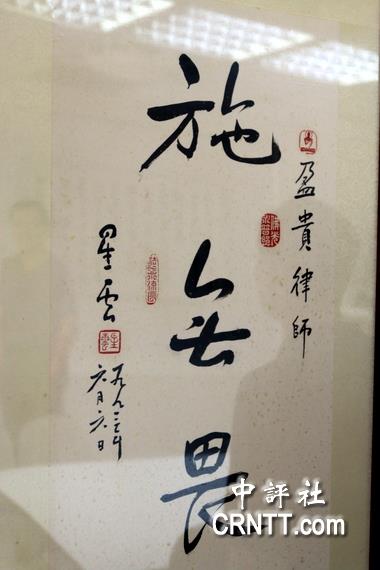 盈貴律師
施無畏
星云
六月六日
中評社
CRNTT.com